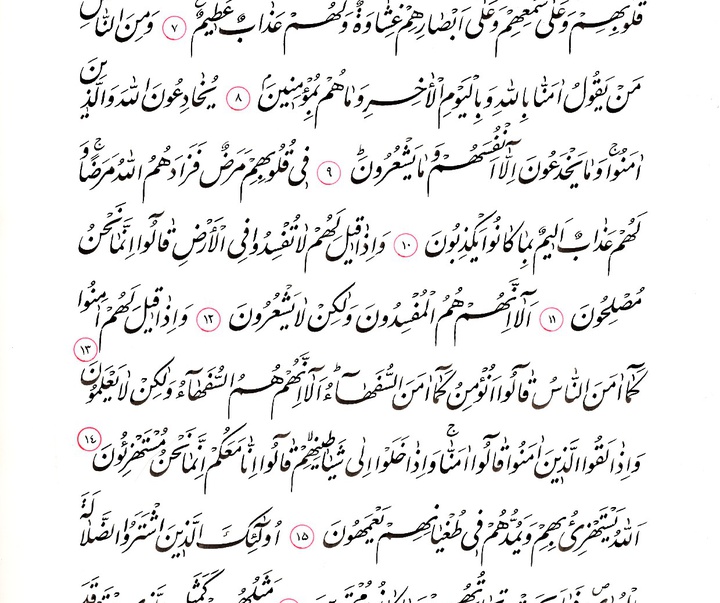 قُلُوبِهِمْ وَعَلٰى سَمْعِهِمْ وَعَلٰى اَبْصَارِهِمْ غِشَاوَةٌ وَلَهُمْ عَذَابٌ عَظِيمٌ ٧ وَمِنَ النَّاسِ
مَنْ يَقُولُ اٰمَنَّا بِاللّٰهِ وَبِالْيَوْمِ الْاٰخِرِ وَمَا هُمْ بِمُؤْمِنِينَ ٨ يُخَادِعُونَ اللّٰهَ وَالَّذِينَ
اٰمَنُوا وَمَا يَخْدَعُونَ اِلَّا اَنْفُسَهُمْ وَمَا يَشْعُرُونَ ٩ فِي قُلُوبِهِمْ مَرَضٌ فَزَادَهُمُ اللّٰهُ مَرَضًا وَ
لَهُمْ عَذَابٌ اَلِيمٌ بِمَا كَانُوا يَكْذِبُونَ ١٠ وَاِذَا قِيلَ لَهُمْ لَا تُفْسِدُوا فِي الْاَرْضِ قَالُوا اِنَّمَا نَحْنُ
مُصْلِحُونَ ١١ اَلَا اِنَّهُمْ هُمُ الْمُفْسِدُونَ وَلٰكِنْ لَا يَشْعُرُونَ ١٢ وَاِذَا قِيلَ لَهُمْ اٰمِنُوا
كَمَا اٰمَنَ النَّاسُ قَالُوا اَنُؤْمِنُ كَمَا اٰمَنَ السُّفَهَاءُ اَلَا اِنَّهُمْ هُمُ السُّفَهَاءُ وَلٰكِنْ لَا يَعْلَمُونَ ١٣
وَاِذَا لَقُوا الَّذِينَ اٰمَنُوا قَالُوا اٰمَنَّا وَاِذَا خَلَوْا اِلٰى شَيَاطِينِهِمْ قَالُوا اِنَّا مَعَكُمْ اِنَّمَا نَحْنُ مُسْتَهْزِؤُنَ ١٤
اَللّٰهُ يَسْتَهْزِئُ بِهِمْ وَيَمُدُّهُمْ فِي طُغْيَانِهِمْ يَعْمَهُونَ ١٥ اُولٰئِكَ الَّذِينَ اشْتَرَوُا الضَّلَالَةَ